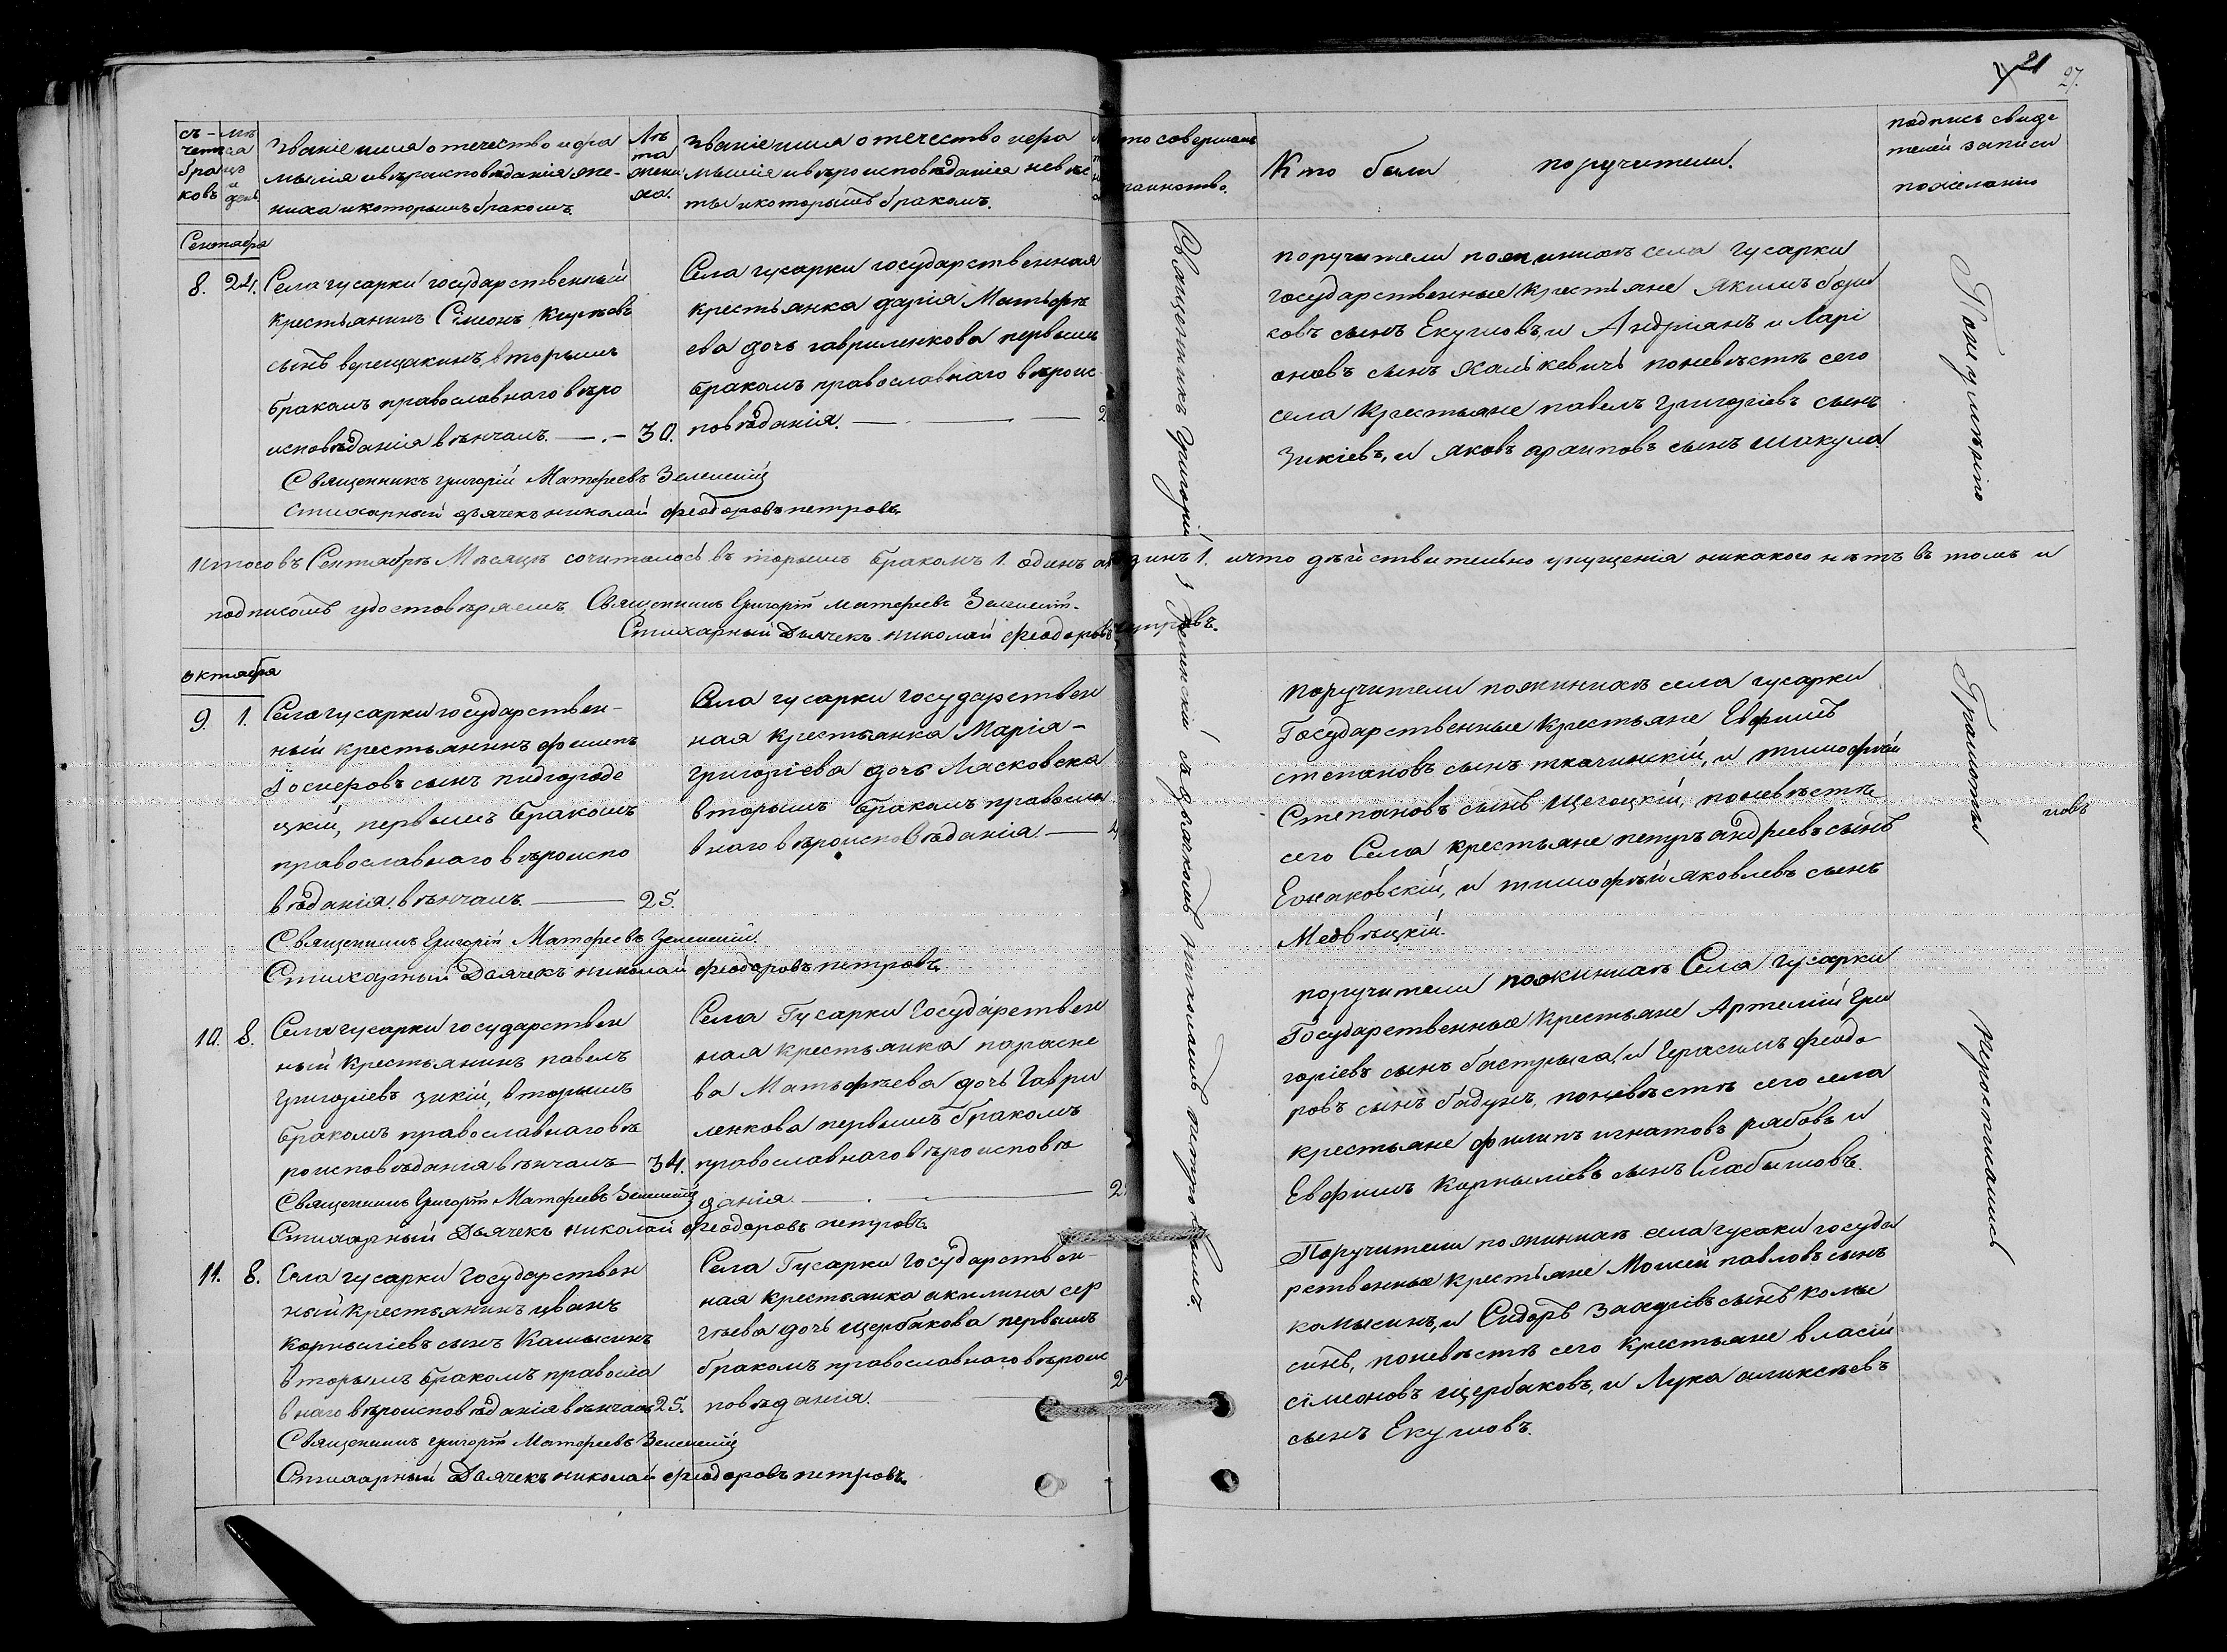 21
27.
счетъ браковъ
мѣсяцъ и день
Званіе имя отечество и фа
милія и вѣроисповѣданія же-
ниха и которымъ бракомъ.
Лѣ
та
жени
ха.
Званіе имя отечество и фа
милія и вѣроисповѣданія невѣс
ты и которымъ бракомъ.
то совершалъ
таинство.
Кто были поручители.
подпись свиде
телей записи
по желанію
Сентября
8. 24.
Села гусарки государственный
крестьянинъ Сімеонъ
сынъ верещакинъ, вторымъ
бракомъ православнаго вѣро
исповѣданія вѣнчалъ. — . — 30.
Священникъ григорій Матфеевъ Зеленскій
Стихарный дьячекъ николай феодоровъ петровъ
Села гусарки государственная
крестьянка дарія Матѳѣ
ева дочь гавриленкова первымъ
бракомъ православнаго вѣроис
повѣданія. — . — 2
поручители по женихѣ села гусарки
государственные крестьяне Якимъ
ковъ сынъ Екушовъ, и Андріанъ и Ларі
оновъ сынъ Халькевичъ по невѣстѣ сего
села крестьяне павелъ григоріевъ сынъ
Зикіевъ, и яковъ сынъ шакула
итого въ Сентябрѣ Мѣсяцѣ сочиталось вторымъ бракомъ 1. одинъ а одинъ 1. и что дѣйствительно упущенія никакого нѣтъ въ томъ и
подписомъ удостовѣряемъ. Священникъ Григорій матфеевъ Зеленскій.
Стихарный Дьячекъ николай феодоровъ петровъ.
октября
9. 1.
Села гусарки государствен-
ный крестьянинъ филипъ
Іосифовъ сынъ пидгороде
цкій, первымъ бракомъ
православнаго вѣроиспо
вѣданія. вѣнчалъ. — 25.
Священникъ Григорій Матфеевъ Зеленскій.
Стихарный Дьячекъ николай феодоровъ петровъ
Села гусарки государствен
ная крестьянка Марія -
григоріева дочь Лясковска
вторымъ бракомъ правосла
внаго вѣроисповѣданія. — 4
поручители по женихѣ села гусарки
Государственные крестьяне Евфимъ
степановъ сынъ ткачинскій, и тимофѣй
Степановъ сынъ Щегоцкій, по невѣстѣ
сего Села крестьяне петръ андреевъ сынъ
Ежаковскій, и тимофѣй яковлевъ сынъ
Медвѣцкій.
10. 8.
Села гусарки государствен
ный крестьянинъ павелъ
григоріевъ зикій, вторымъ
бракомъ православнаго вѣ
роисповѣданія вѣнчалъ — 34.
Священникъ Григорій Матфеевъ Зеленскій
Стихарный Дьячекъ николай феодоровъ петровъ
Села Гусарки Государствен
ная крестьянка параске
ва Матьфѣева дочь Гаври
ленкова первымъ бракомъ
православнаго вѣроисповѣ
данія. — . — 2
поручители по женихѣ Села Гусарки
Государственные крестьяне Артемій Гри
горіевъ сынъ бастрыга, и Герасимъ феодо
ровъ сынъ бадунъ, по невѣстѣ сего села
крестьяне филипъ игнатовъ рябовъ и
Евфимъ Корныліевъ сынъ Слабышовъ.
11. 8.
Села гусарки Государствен
ный крестьянинъ иванъ
корныліевъ сынъ Камысинъ
вторымъ бракомъ правосла
внаго вѣроисповѣданія вѣнчалъ 25.
Священникъ григорій Матфеевъ Зеленскій
Стихарный Дьячекъ николай феодоровъ петровъ
Села Гусарки Государствен-
ная крестьянка акилина сер
гѣева дочь щербакова первымъ
бракомъ православнаго вѣроис
повѣданія. 2
Поручители по женихѣ села гусаки госуда
рственные крестьяне Моисей павловъ сынъ
комысинъ, и Сидоръ сынъ комы
синъ, по невѣстѣ сего крестьяне власій
сімионовъ щербаковъ, и Лука алексѣевъ
сынъ Екушовъ.
Священникъ Григорій Зеленскій съ дьячкомъ николаемъ петровымъ.
По неумѣнію
Грамоты
нерасписались
повъ